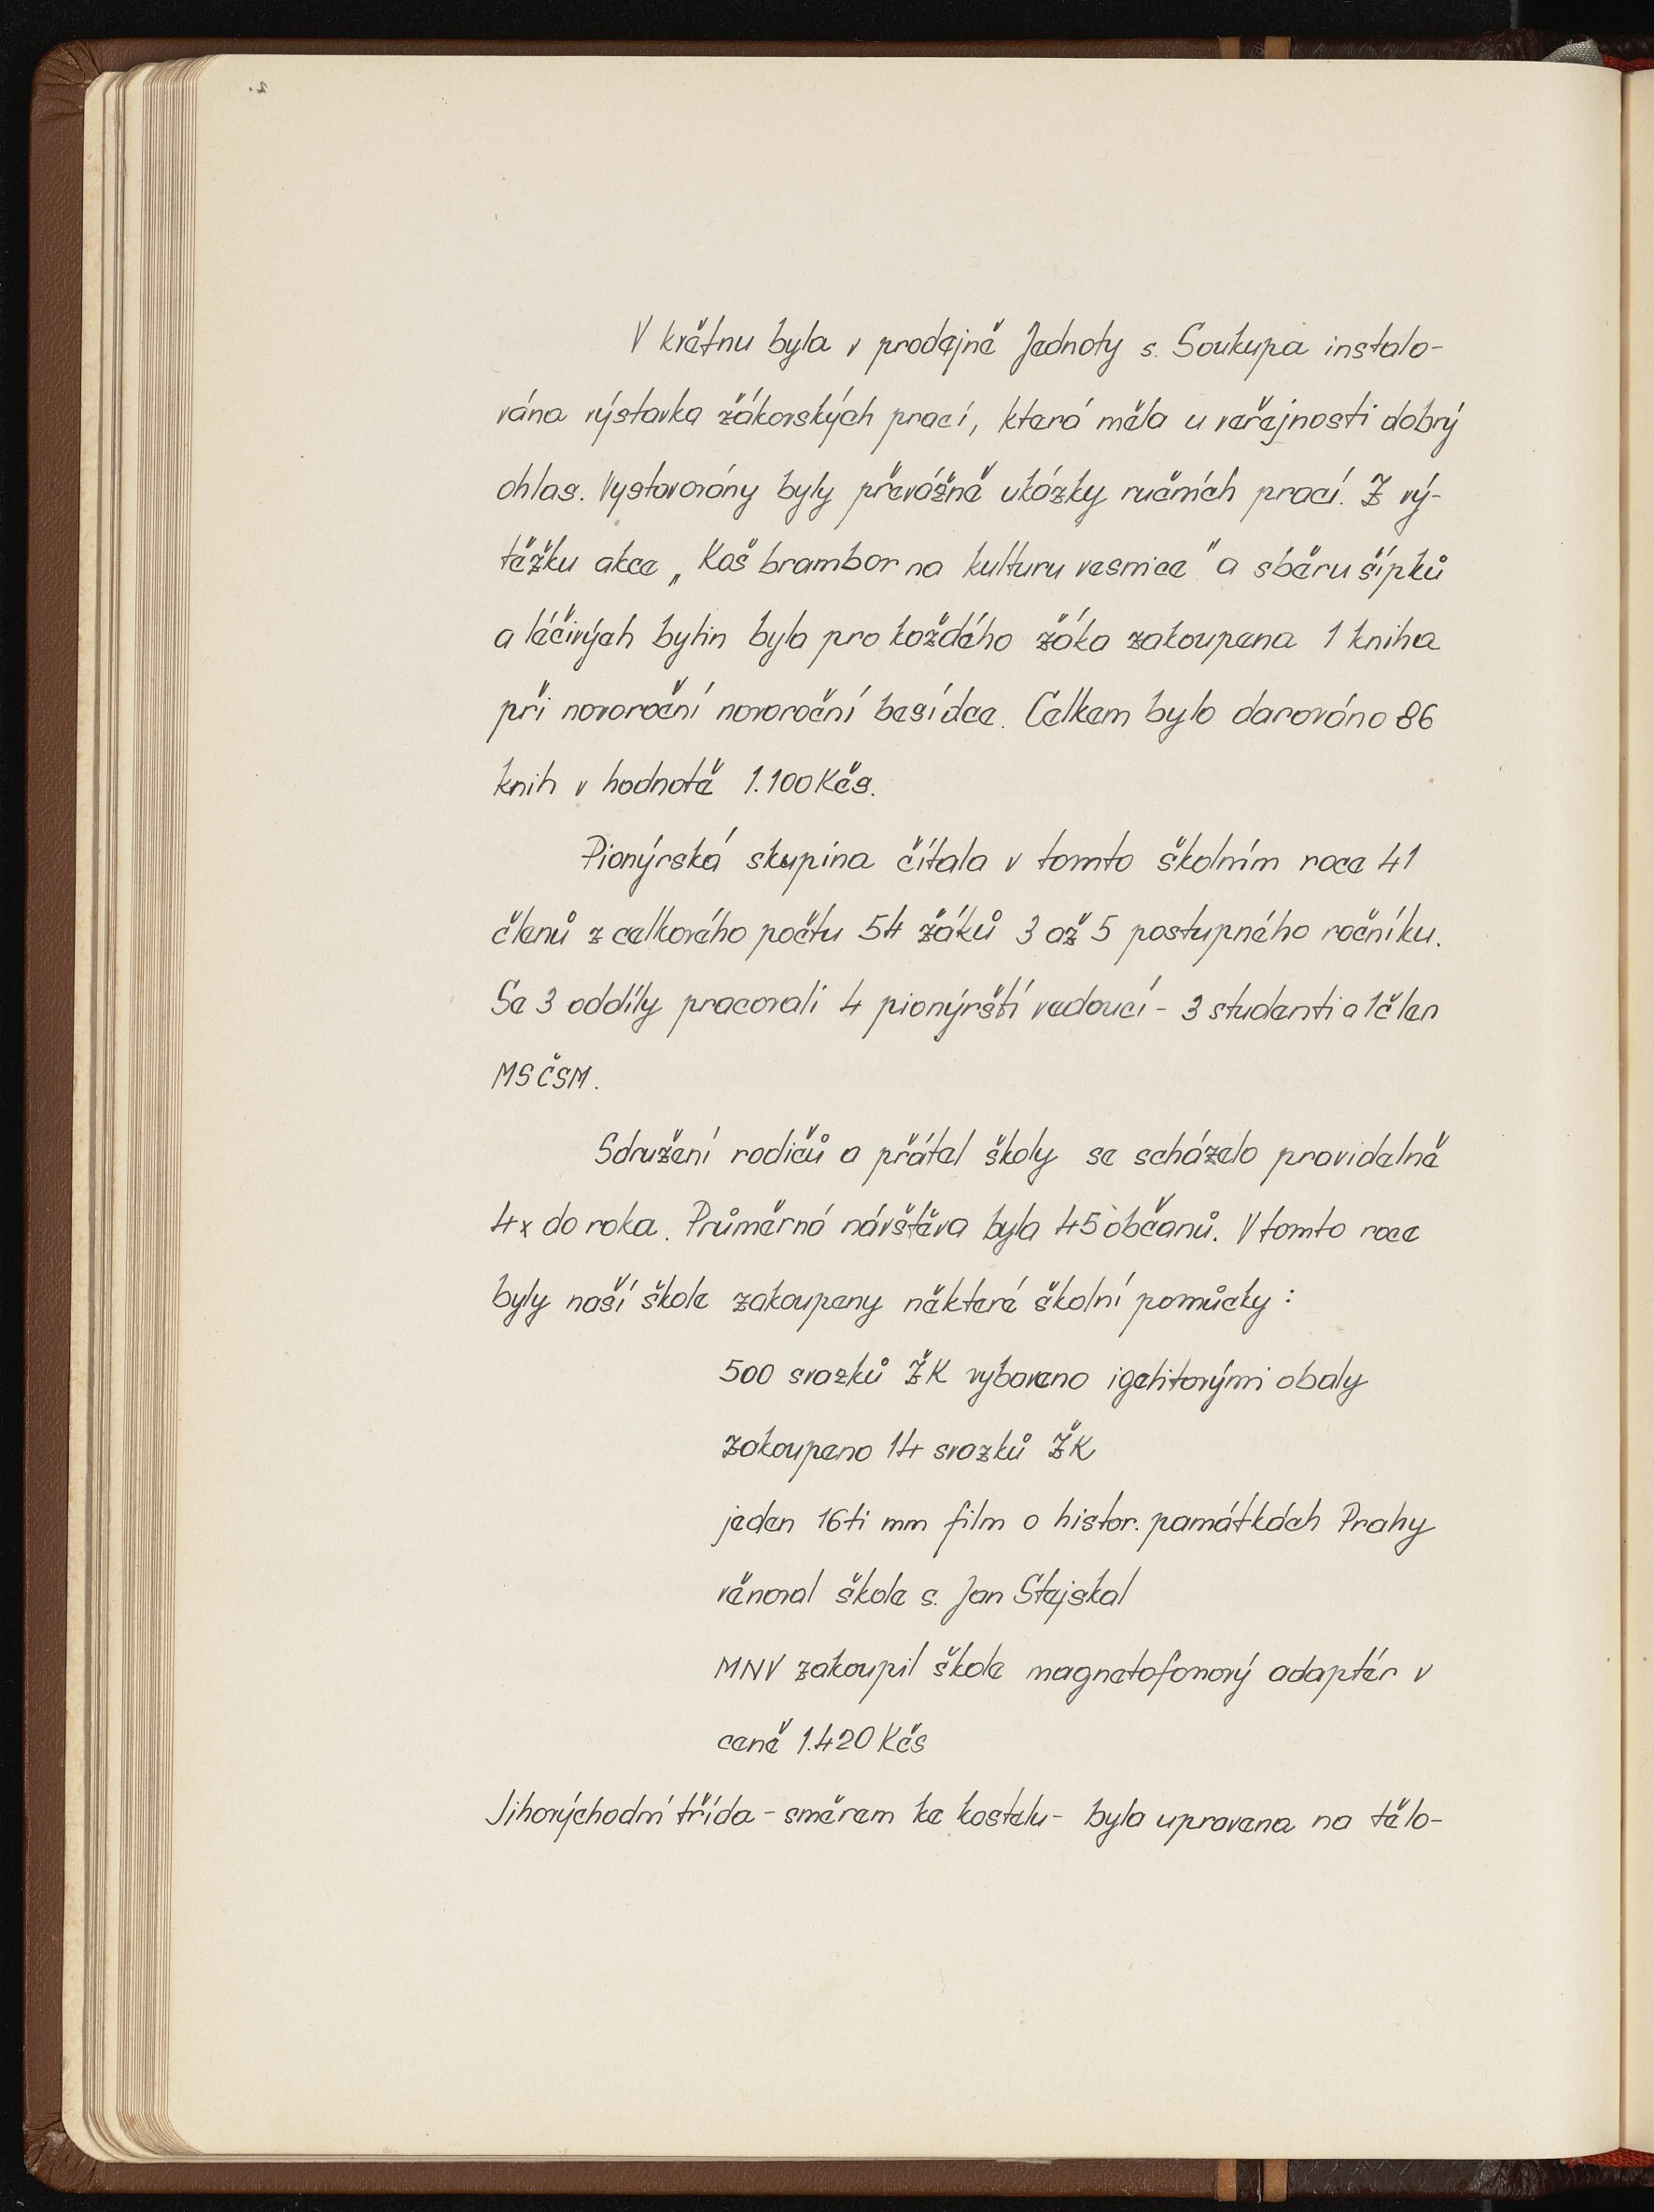 V květnu byla v prodejně Jednoty s. Soukupa instalo-
vána výstavka žákovských prací, která měla u veřejnosti dobrý
ohlas. Vystavovány byly převážně ukázky ručních prací. Z vý-
těžku akce „Koš brambor na kulturu vesnice" a sběru šípků
a léčivých bylin byla pro každého žáka zakoupena 1 kniha
při novoroční novoroční besídce. Celkem bylo darováno 86
knih v hodnotě 1.100 Kčs.
Pionýrská skupina čítala v tomto školním roce 41
členů z celkového počtu 54 žáků 3 až 5 postupného ročníku.
Se 3 oddíly pracovali 4 pionýrští vedoucí - 3 studenti a 1 člen
MSČSM.
Sdružení rodičů a přátel školy se scházelo pravidelně
4x do roka. Průměrná návštěva byla 45 občanů. V tomto roce
byly naší škole zakoupeny některé školní pomůcky :
500 svazků ŽK vybaveno igelitovými obaly
zakoupeno 14 svazků ŽK
jeden 16ti mm film o histor. památkách Prahy
věnoval škole s. Jan Stejskal
MNV zakoupil škole magnetofonový adaptér v
ceně 1.420 Kčs
Jihovýchodní třída - směrem ke kostelu - byla upravena na tělo-